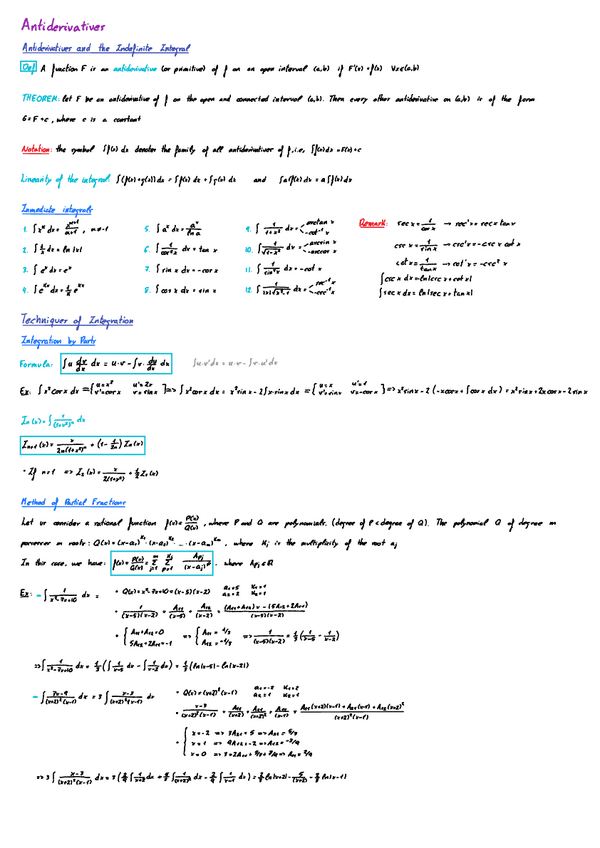 Antiderivatives
Antiderivatives and the Indefinite Integral
Def A function F is an antiderivative (or primitive) of f on an open interval (a,b) if F'(x) = f(x) ∀x∈(a,b)
THEOREM: let F be an antiderivative of f on the open and connected interval (a,b). Then every other antiderivative on (a,b) is of the form
G = F + c, where c is a constant
Notation: the symbol ∫f(x) dx denotes the family of all antiderivatives of f, i.e., ∫f(x)dx = F(x)+c
Linearity of the integral: ∫(f(x)+g(x))dx = ∫f(x) dx + ∫g(x) dx and ∫af(x)dx = a∫f(x)dx
Immediate integrals
1. ∫x^n dx = x^(n+1)/(n+1), n≠-1 5. ∫a^x dx = a^x/ln a 9. ∫1/(1+x²) dx = arctan x, -cot⁻¹x Remark: sec x = 1/cos x → sec'x = sec x tan x
2. ∫1/x dx = ln|x| 6. ∫1/cos²x dx = tan x 10. ∫1/√(1-x²) dx = arcsin x, -arccos x csc x = 1/sin x → csc'x = -csc x cot x
3. ∫e^x dx = e^x 7. ∫sin x dx = -cos x 11. ∫1/sin²x dx = -cot x cot x = 1/tan x → cot'x = -csc²x
4. ∫e^(kx) dx = 1/k e^(kx) 8. ∫cos x dx = sin x 12. ∫1/(|x|√(x²-1)) dx = sec⁻¹x, -csc⁻¹x ∫csc x dx = -ln|csc x + cot x|
∫sec x dx = ln|sec x + tan x|
Techniques of Integration
Integration by Parts
Formula: ∫u dv/dx dx = u·v - ∫v·du/dx dx ∫u·v'dx = u·v - ∫v·u'dx
Ex: ∫x²cos x dx = {u=x² u'=2x v'=cos x v=sin x} => ∫x²cos x dx = x²sin x - 2∫x·sin x dx = {u=x u'=1 v'=sin x v=-cos x} => x²sin x - 2(-x cos x + ∫cos x dx) = x²sin x + 2x cos x - 2 sin x
In(x) = ∫1/(1+x²)^n dx
In+1(x) = x/(2n(1+x²)^n) + (1 - 1/2n) In(x)
• If n=1 => I2(x) = x/(2(1+x²)) + 1/2 I1(x)
Method of Partial Fractions
Let us consider a rational function f(x) = P(x)/Q(x), where P and Q are polynomials. (degree of P < degree of Q). The polynomial Q of degree m
possesses m roots: Q(x) = (x-a1)^K1 · (x-a2)^K2 · ... · (x-am)^Km, where Kj is the multiplicity of the root aj
In this case, we have: f(x) = P(x)/Q(x) = Σ(j=1 to m) Σ(p=1 to Kj) Apj/(x-aj)^p, where Apj∈R
Ex: - ∫1/(x²-7x+10) dx = • Q(x) = x²-7x+10 = (x-5)(x-2) a1=5 K1=1 a2=2 K2=1
• 1/((x-5)(x-2)) = A11/(x-5) + A12/(x-2) = ((A11+A12)x - (5A12+2A11))/((x-5)(x-2))
• {A11+A12=0 5A12+2A11=-1 => {A11=1/3 A12=-1/3 => 1/((x-5)(x-2)) = 1/3(1/(x-5) - 1/(x-2))
=> ∫1/(x²-7x+10) dx = 1/3(∫1/(x-5) dx - ∫1/(x-2) dx) = 1/3(ln|x-5| - ln|x-2|)
- ∫(3x-9)/((x+2)²(x-1)) dx = 3∫(x-3)/((x+2)²(x-1)) dx • Q(x) = (x+2)²(x-1) a1=-2 K1=2 a2=1 K2=1
• (x-3)/((x+2)²(x-1)) = A11/(x+2) + A21/(x+2)² + A12/(x-1) = (A11(x+2)(x-1) + A21(x-1) + A12(x+2)²)/((x+2)²(x-1))
• {x=-2 => 3A21=5 => A21=5/3
x=1 => 9A12=-2 => A12=-2/9
x=0 => 3=2A11+5/3+8/9 => A11=2/9
=> 3∫(x-3)/((x+2)²(x-1)) dx = 3(2/9∫1/(x+2) dx + 5/3∫1/(x+2)² dx - 2/9∫1/(x-1) dx) = 2/3 ln|x+2| - 5/(x+2) - 2/3 ln|x-1|